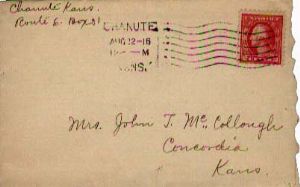 Chanute Kans.
Route 6. Box 81
CHANUTE
AUG 22-16
M
KANS.
Mrs. John T. McCollough
Concordia
Kans.